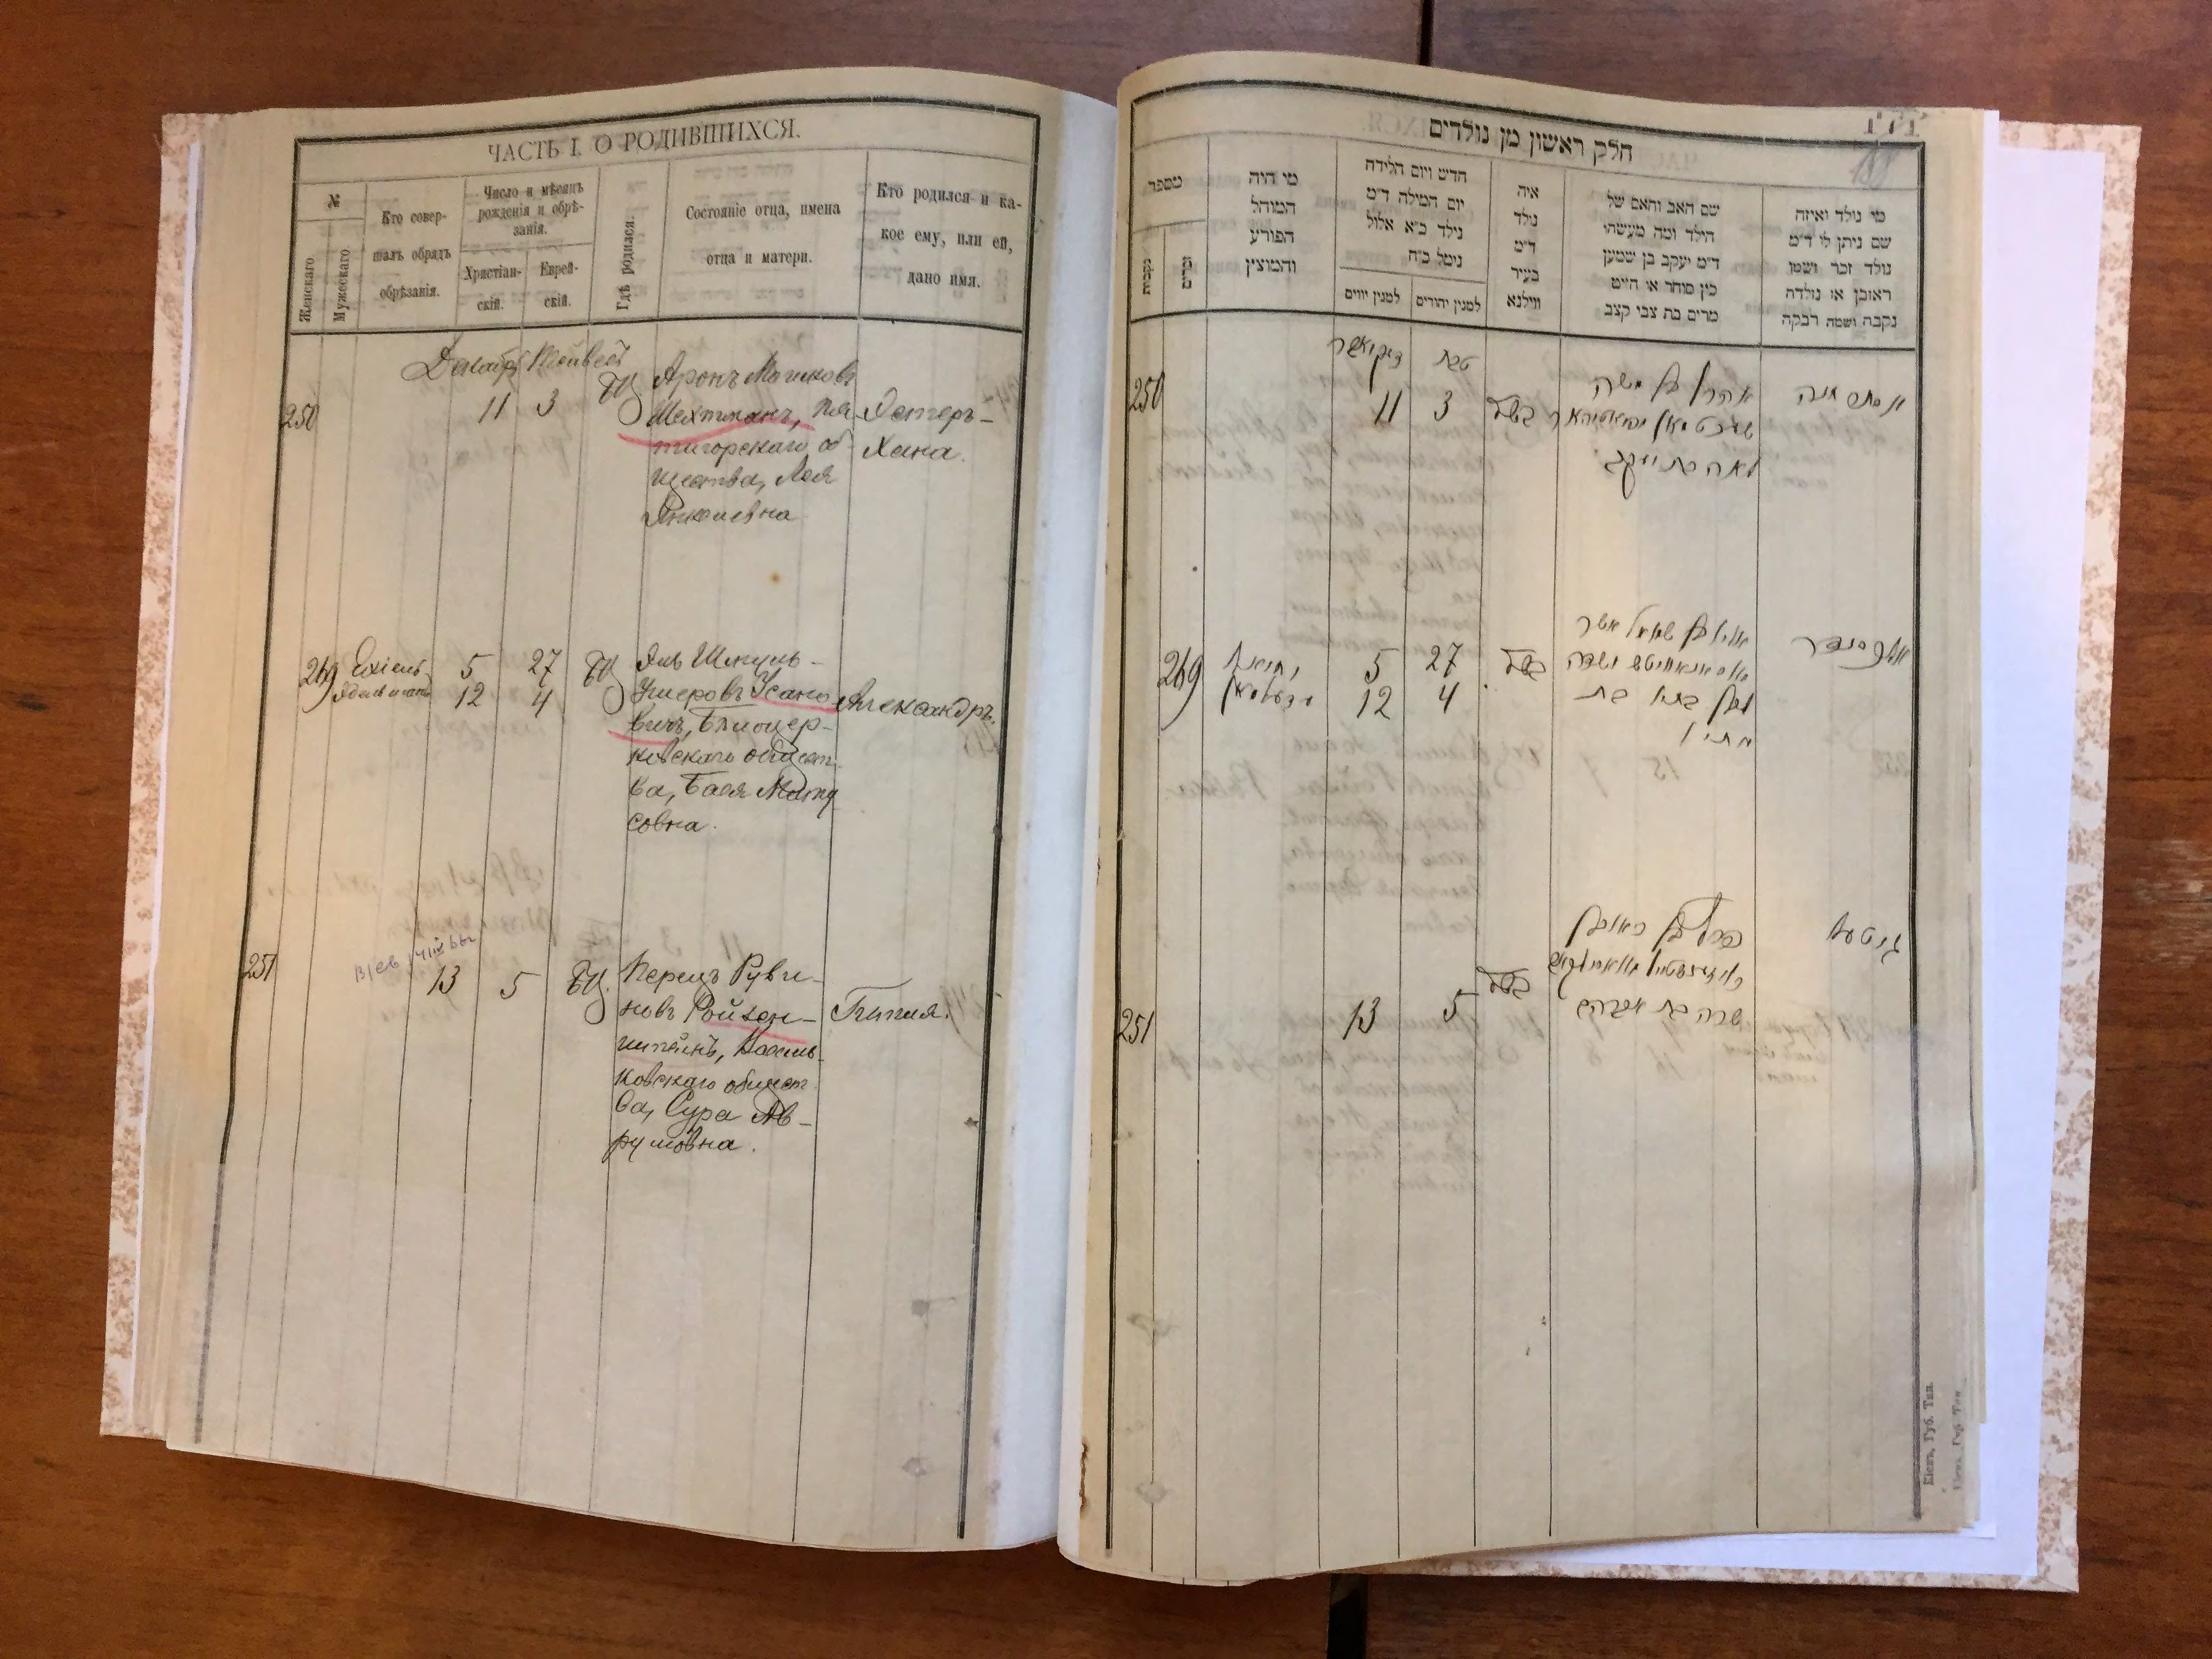 ЧАСТЬ I. О РОДИВШИХСЯ.
№
Женскаго
Мужескаго
Кто совер-
шалъ обрядъ
обрѣзанія.
Число и мѣсяцъ
рожденія и обрѣ-
занія.
Христіан-
скій.
Еврей-
скій.
Гдѣ родился.
Состояніе отца, имена
отца и матери.
Кто родился и ка-
кое ему, или ей,
дано имя.
Декабрь Тейвес
250
11 3
БЦ
Аронъ Мошковъ
Шехтманъ, Пя-
тигорскаго об-
щества, Лея
Янкелевна
Эстеръ-
Хана.
249
Ехіель
Эдельманъ
5 27
12 4
БЦ
Эль Шмуль-
Ушеровъ Усано
вичъ, Бѣлоцер-
ковскаго общест-
ва, Бася Мату
совна.
Александръ.
251
13 5
БЦ.
Перецъ Руви-
новъ Ройзен-
штейнъ, Василь-
ковскаго общест
ва, Сура Ав-
румовна.
Гитля.
חלק ראשון מן נולדים
מספר
נקבות
זכרים
מי היה
המוהל
הפורע
והמוצץ
חדש ויום הלידה
יום המילה ד"מ
נילד כ"א אלול
נימל כ"ח
למנין יווים
למנין יהודים
איה
נולד
ד"מ
בעיר
ווילנא
שם האב והאם של
הילד ומה מעשהו
ד"מ יעקב בן שמעון
כץ סוחר או הייט
מרים בת צבי קצב
מי נולד ואיזה
שם ניתן לו ד"מ
נולד זכר ושמו
ראובן או נולדה
נקבה ושמה רבקה
דיקאבר
טבת
250
11 3
אהרן בן משה
לאה בת יעקב
אסתר חנה
249
5 27
12 4
יחיאל
עדעלמאן
אלי בן שמואל אשר
אלכסנדר
251
13 5
פרץ בן ראובן
שרה בת אברהם
גיטל
171
Кіевъ, Губ. Тип.